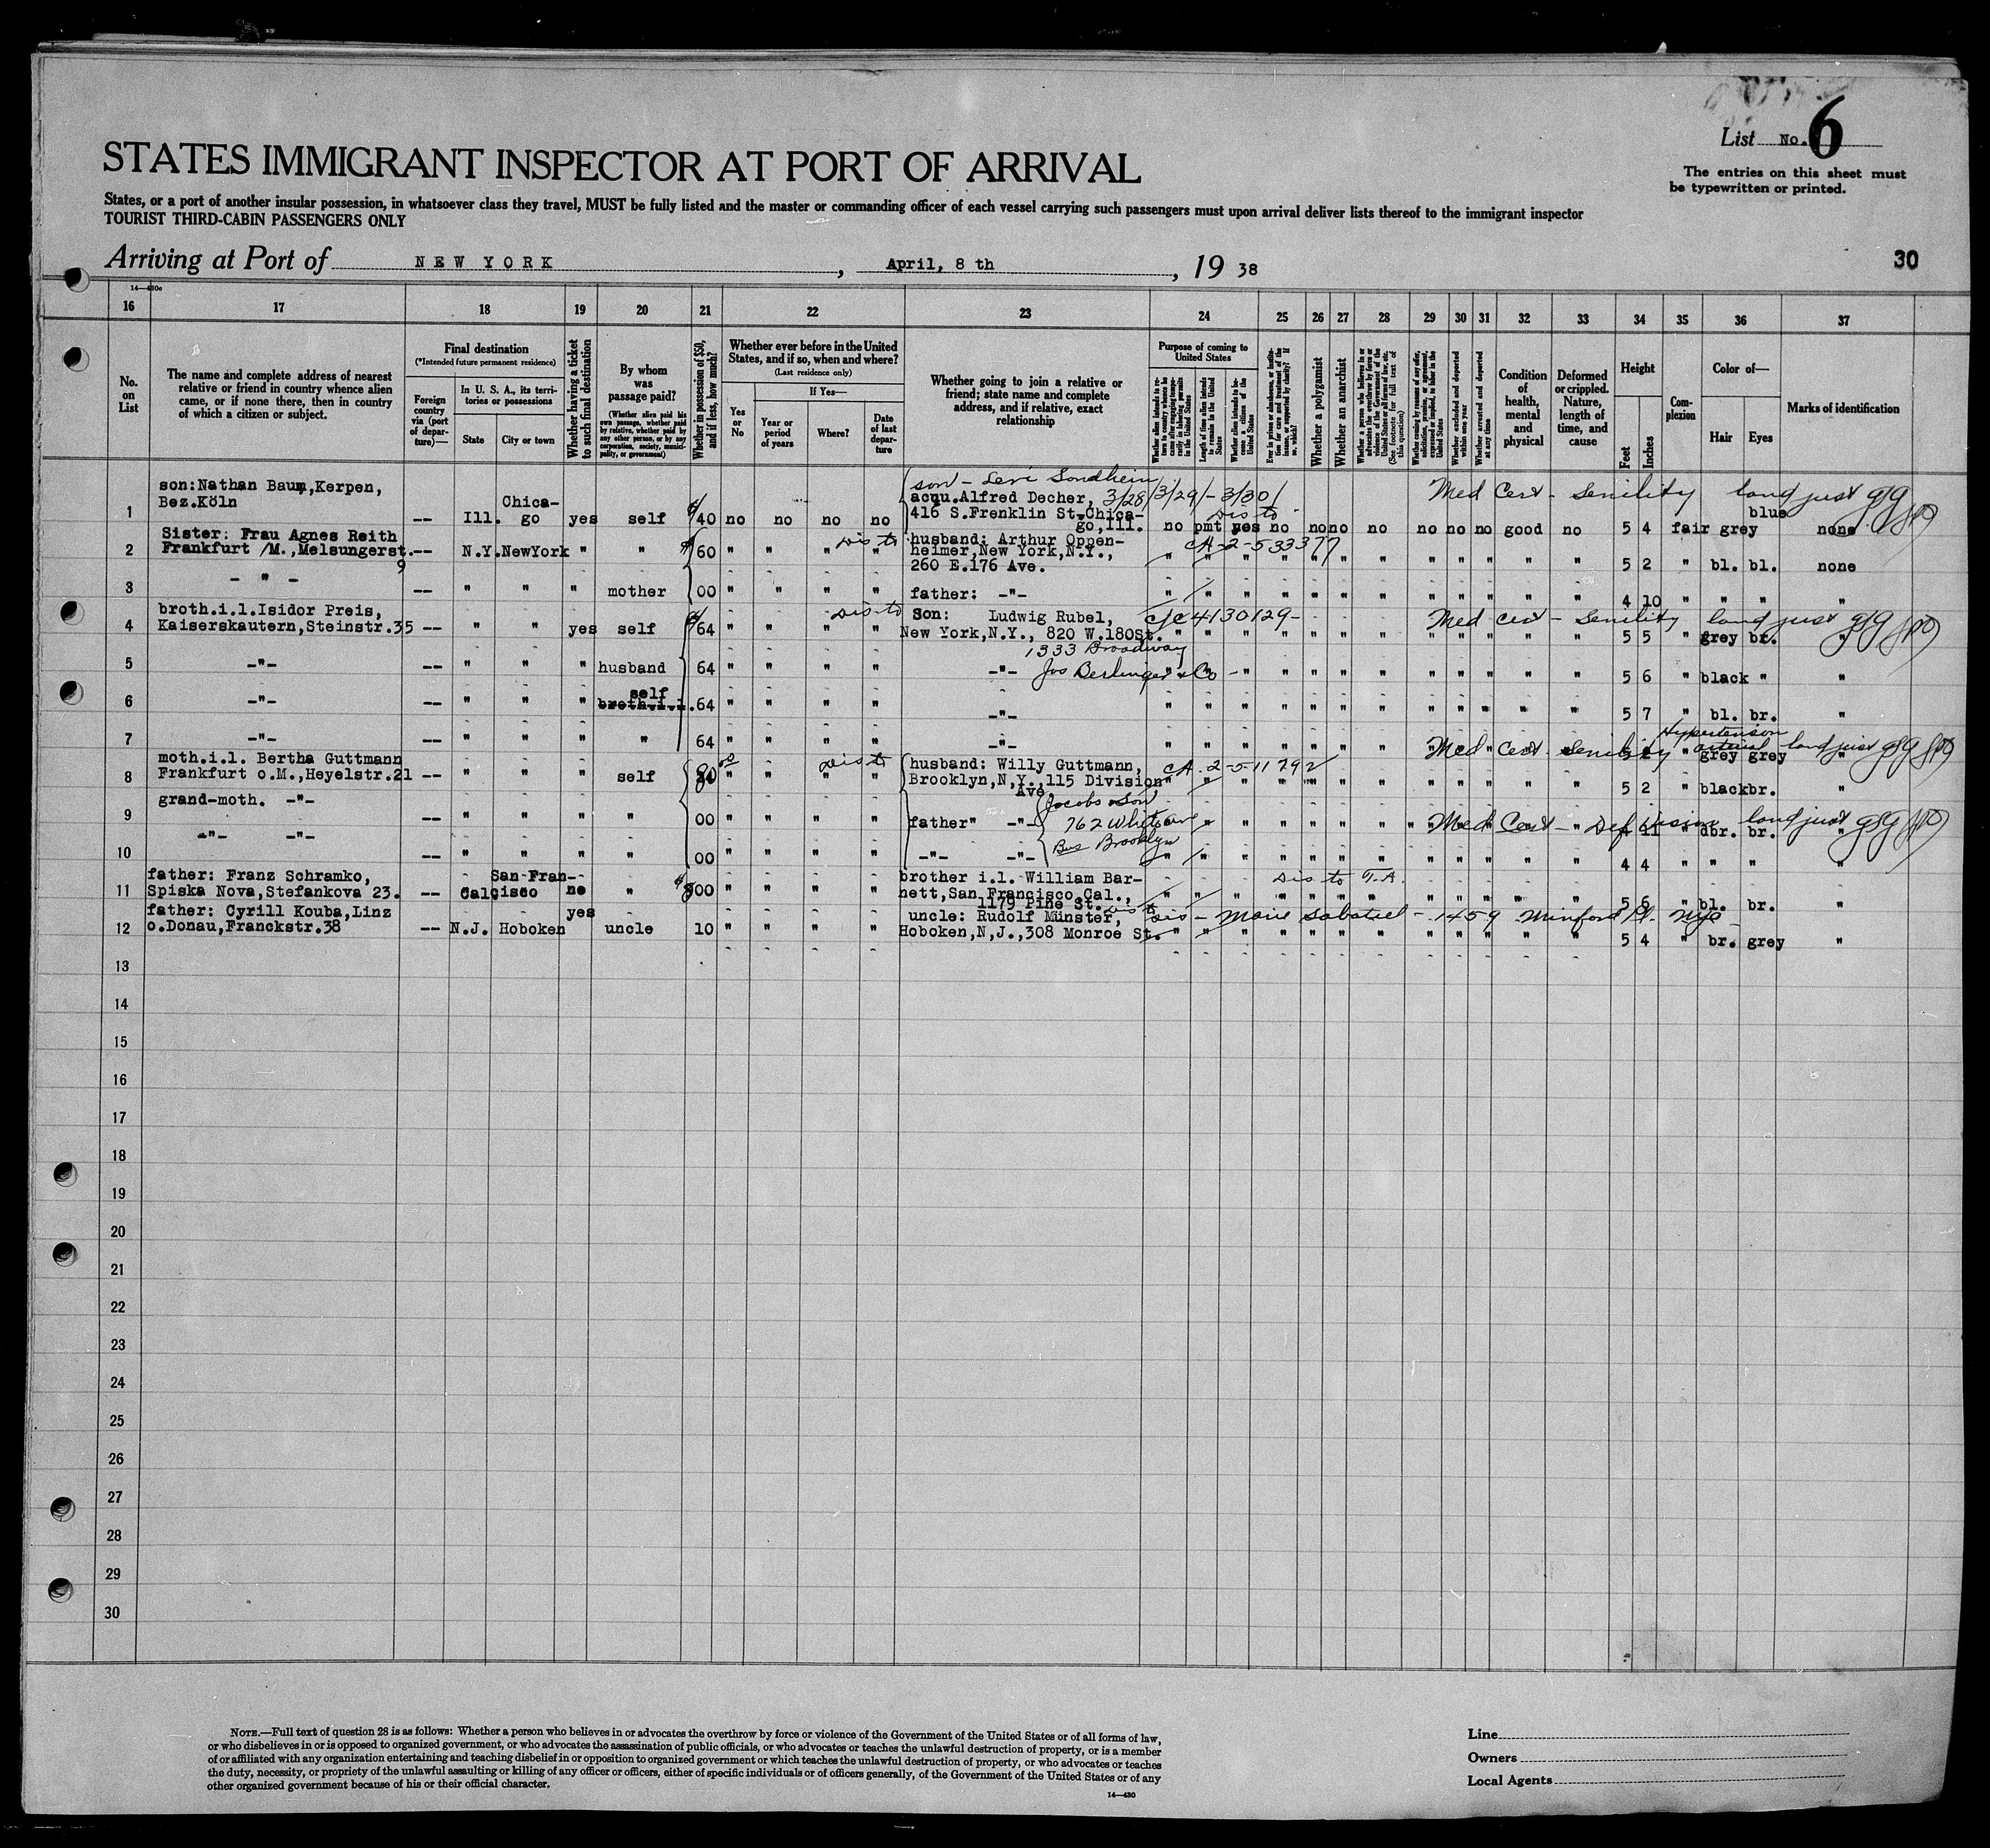 List No. 6
The entries on this sheet must
be typewritten or printed.
STATES IMMIGRANT INSPECTOR AT PORT OF ARRIVAL
States, or a port of another insular possession, in whatsoever class they travel, MUST be fully listed and the master or commanding officer of each vessel carrying such passengers must upon arrival deliver lists thereof to the immigrant inspector
TOURIST THIRD-CABIN PASSENGERS ONLY
Arriving at Port of NEW YORK, April, 8 th, 19 38
30
14—430c
16 17 18 19 20 21 22 23 24 25 26 27 28 29 30 31 32 33 34 35 36 37
No. on List
The name and complete address of nearest relative or friend in country whence alien came, or if none there, then in country of which a citizen or subject.
Final destination
(*Intended future permanent residence)
Foreign country via (port of departure)—
In U. S. A., its territories or possessions
State
City or town
Whether having a ticket to such final destination
By whom was passage paid?
(Whether alien paid his own passage, whether paid by relative, whether paid by any other person, or by any corporation, society, municipality, or government)
Whether in possession of $50, and if less, how much?
Whether ever before in the United States, and if so, when and where?
(Last residence only)
Yes or No
If Yes—
Year or period of years
Where?
Date of last departure
Whether going to join a relative or friend; state name and complete address, and if relative, exact relationship
Purpose of coming to United States
Length of time alien intends to remain in the United States
Whether alien intends to become a citizen of the United States
Whether a polygamist
Whether an anarchist
Whether excluded and deported within one year
Whether arrested and deported at any time
Condition of health, mental and physical
Deformed or crippled. Nature, length of time, and cause
Height
Feet
Inches
Complexion
Color of—
Hair
Eyes
Marks of identification
son – Levi Sondheim
1 son:Nathan Baum,Kerpen, Bez.Köln -- Ill. Chica-go yes self $ 40 no no no no acqu.Alfred Decher, 3/28/3/29/-3/30/
416 S.Frenklin St.Chica-go,Ill. Dis to no pmt yes no no no no no no no good no 5 4 fair grey blue none
Med Cert - Senility land just
2 Sister: Frau Agnes Reith Frankfurt /M.,Melsungerst. 9 -- N.Y. NewYork " " $ 60 " " " " Dis to husband: Arthur Oppen-
heimer,New York,N.Y., 260 E.176 Ave. CA-2-533377 " " " " " " " " " " " " 5 2 " bl. bl. none
3 - " - -- " " " mother 00 " " " " father: -"- 4 10 " " " "
4 broth.i.l.Isidor Preis, Kaiserskautern,Steinstr.35 -- " " yes self $ 64 " " " " Dis to Son: Ludwig Rubel,
New York,N.Y., 820 W.180St. 4130129- Med cert - Senility land just
" " " " " " " " " " " " 5 5 " grey br. "
1333 Broadway
5 -"- -- " " " husband 64 " " " " -"- Jos Berlinger & Co " " " " " " " " " " 5 6 " black " "
6 -"- -- " " " self broth.i.l. 64 " " " " -"- " " " " " " " " " " " " 5 7 " bl. br. "
7 -"- -- " " " " 64 " " " " -"- Med Cert - Senility Hypertension arterial land just
" grey grey "
8 moth.i.l. Bertha Guttmann Frankfurt o.M.,Heyelstr.21 -- " " " self 80 " " " " Dis to husband: Willy Guttmann,
Brooklyn,N,Y.,115 Division Ave. CA 2-511792 " " " " " " " " " " 5 2 " black br. "
Jacobs & Son
9 grand-moth. -"- -- " " " " 00 " " " " father" -"- 762
Bus Brooklyn
Med Cert - Def Vision land just
4 11 " dbr. br. "
10 -"- -"- -- " " " " 00 " " " " -"- -"- " " " " " " " " " " " " 4 4 " " " "
11 father: Franz Schramko, Spiska Nova,Stefankova 23. -- Cal. San Fran-cisco no " $ 00 " " " " brother i.l. William Bar-
nett,San Francisco,Cal., 1179 Pine St. Dis to T.A. " " " " " " " " " " 5 6 " bl. br. "
12 father: Cyrill Kouba,Linz o.Donau,Franckstr.38 -- N.J. Hoboken yes uncle 10 " " " " uncle: Rudolf Münster,
Hoboken,N,J.,308 Monroe St. Sis - Marie - 1459 Minford Pl. NYC
" " " " " " " " " " " " 5 4 " br. grey "
13
14
15
16
17
18
19
20
21
22
23
24
25
26
27
28
29
30
NOTE.—Full text of question 28 is as follows: Whether a person who believes in or advocates the overthrow by force or violence of the Government of the United States or of all forms of law,
or who disbelieves in or is opposed to organized government, or who advocates the assassination of public officials, or who advocates or teaches the unlawful destruction of property, or is a member
of or affiliated with any organization entertaining and teaching disbelief in or opposition to organized government or which teaches the unlawful destruction of property, or who advocates or teaches
the duty, necessity, or propriety of the unlawful assaulting or killing of any officer or officers, either of specific individuals or of officers generally, of the Government of the United States or of any
other organized government because of his or their official character.
14—430
Line
Owners
Local Agents